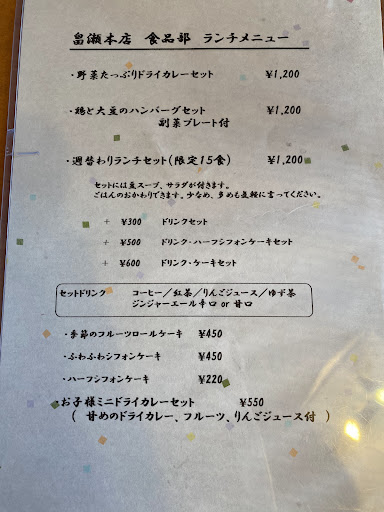 畠瀬本店 食品部 ランチメニュー
・野菜たっぷりドライカレーセット ¥1,200
・鶏と大豆のハンバーグセット ¥1,200
副菜プレート付
・週替わりランチセット(限定15食) ¥1,200
セットには豆スープ、サラダが付きます。
ごはんのおかわりできます。少なめ、多めも気軽に言ってください。
+ ¥300 ドリンクセット
+ ¥500 ドリンク・ハーフシフォンケーキセット
+ ¥600 ドリンク・ケーキセット
セットドリンク コーヒー/紅茶/りんごジュース/ゆず茶
ジンジャーエール辛口 or 甘口
・季節のフルーツロールケーキ ¥450
・ふわふわシフォンケーキ ¥450
・ハーフシフォンケーキ ¥220
・お子様ミニドライカレーセット ¥550
( 甘めのドライカレー、フルーツ、りんごジュース付 )